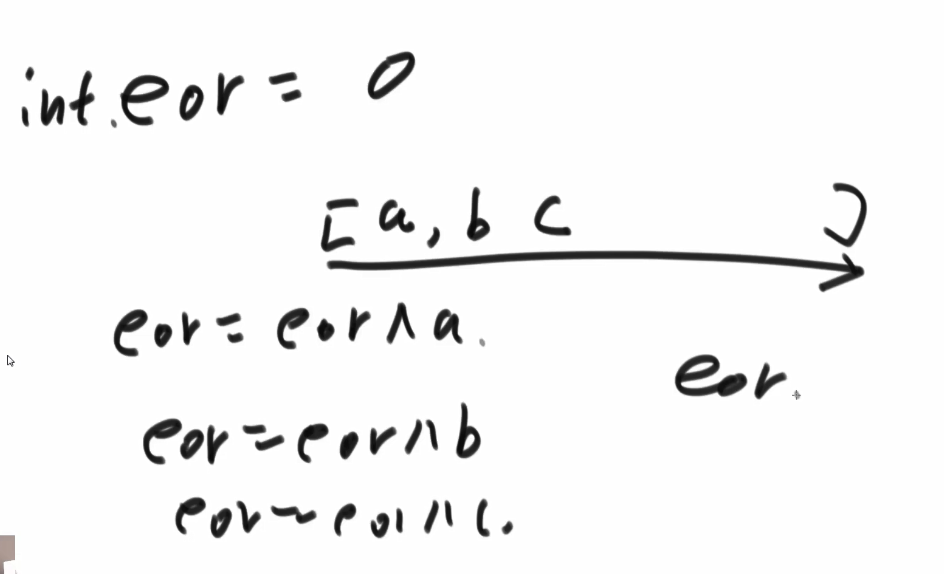 int eor = 0
[a, b c ]
eor = eor ^ a.
eor.
eor = eor ^ b
eor = eor ^ c.